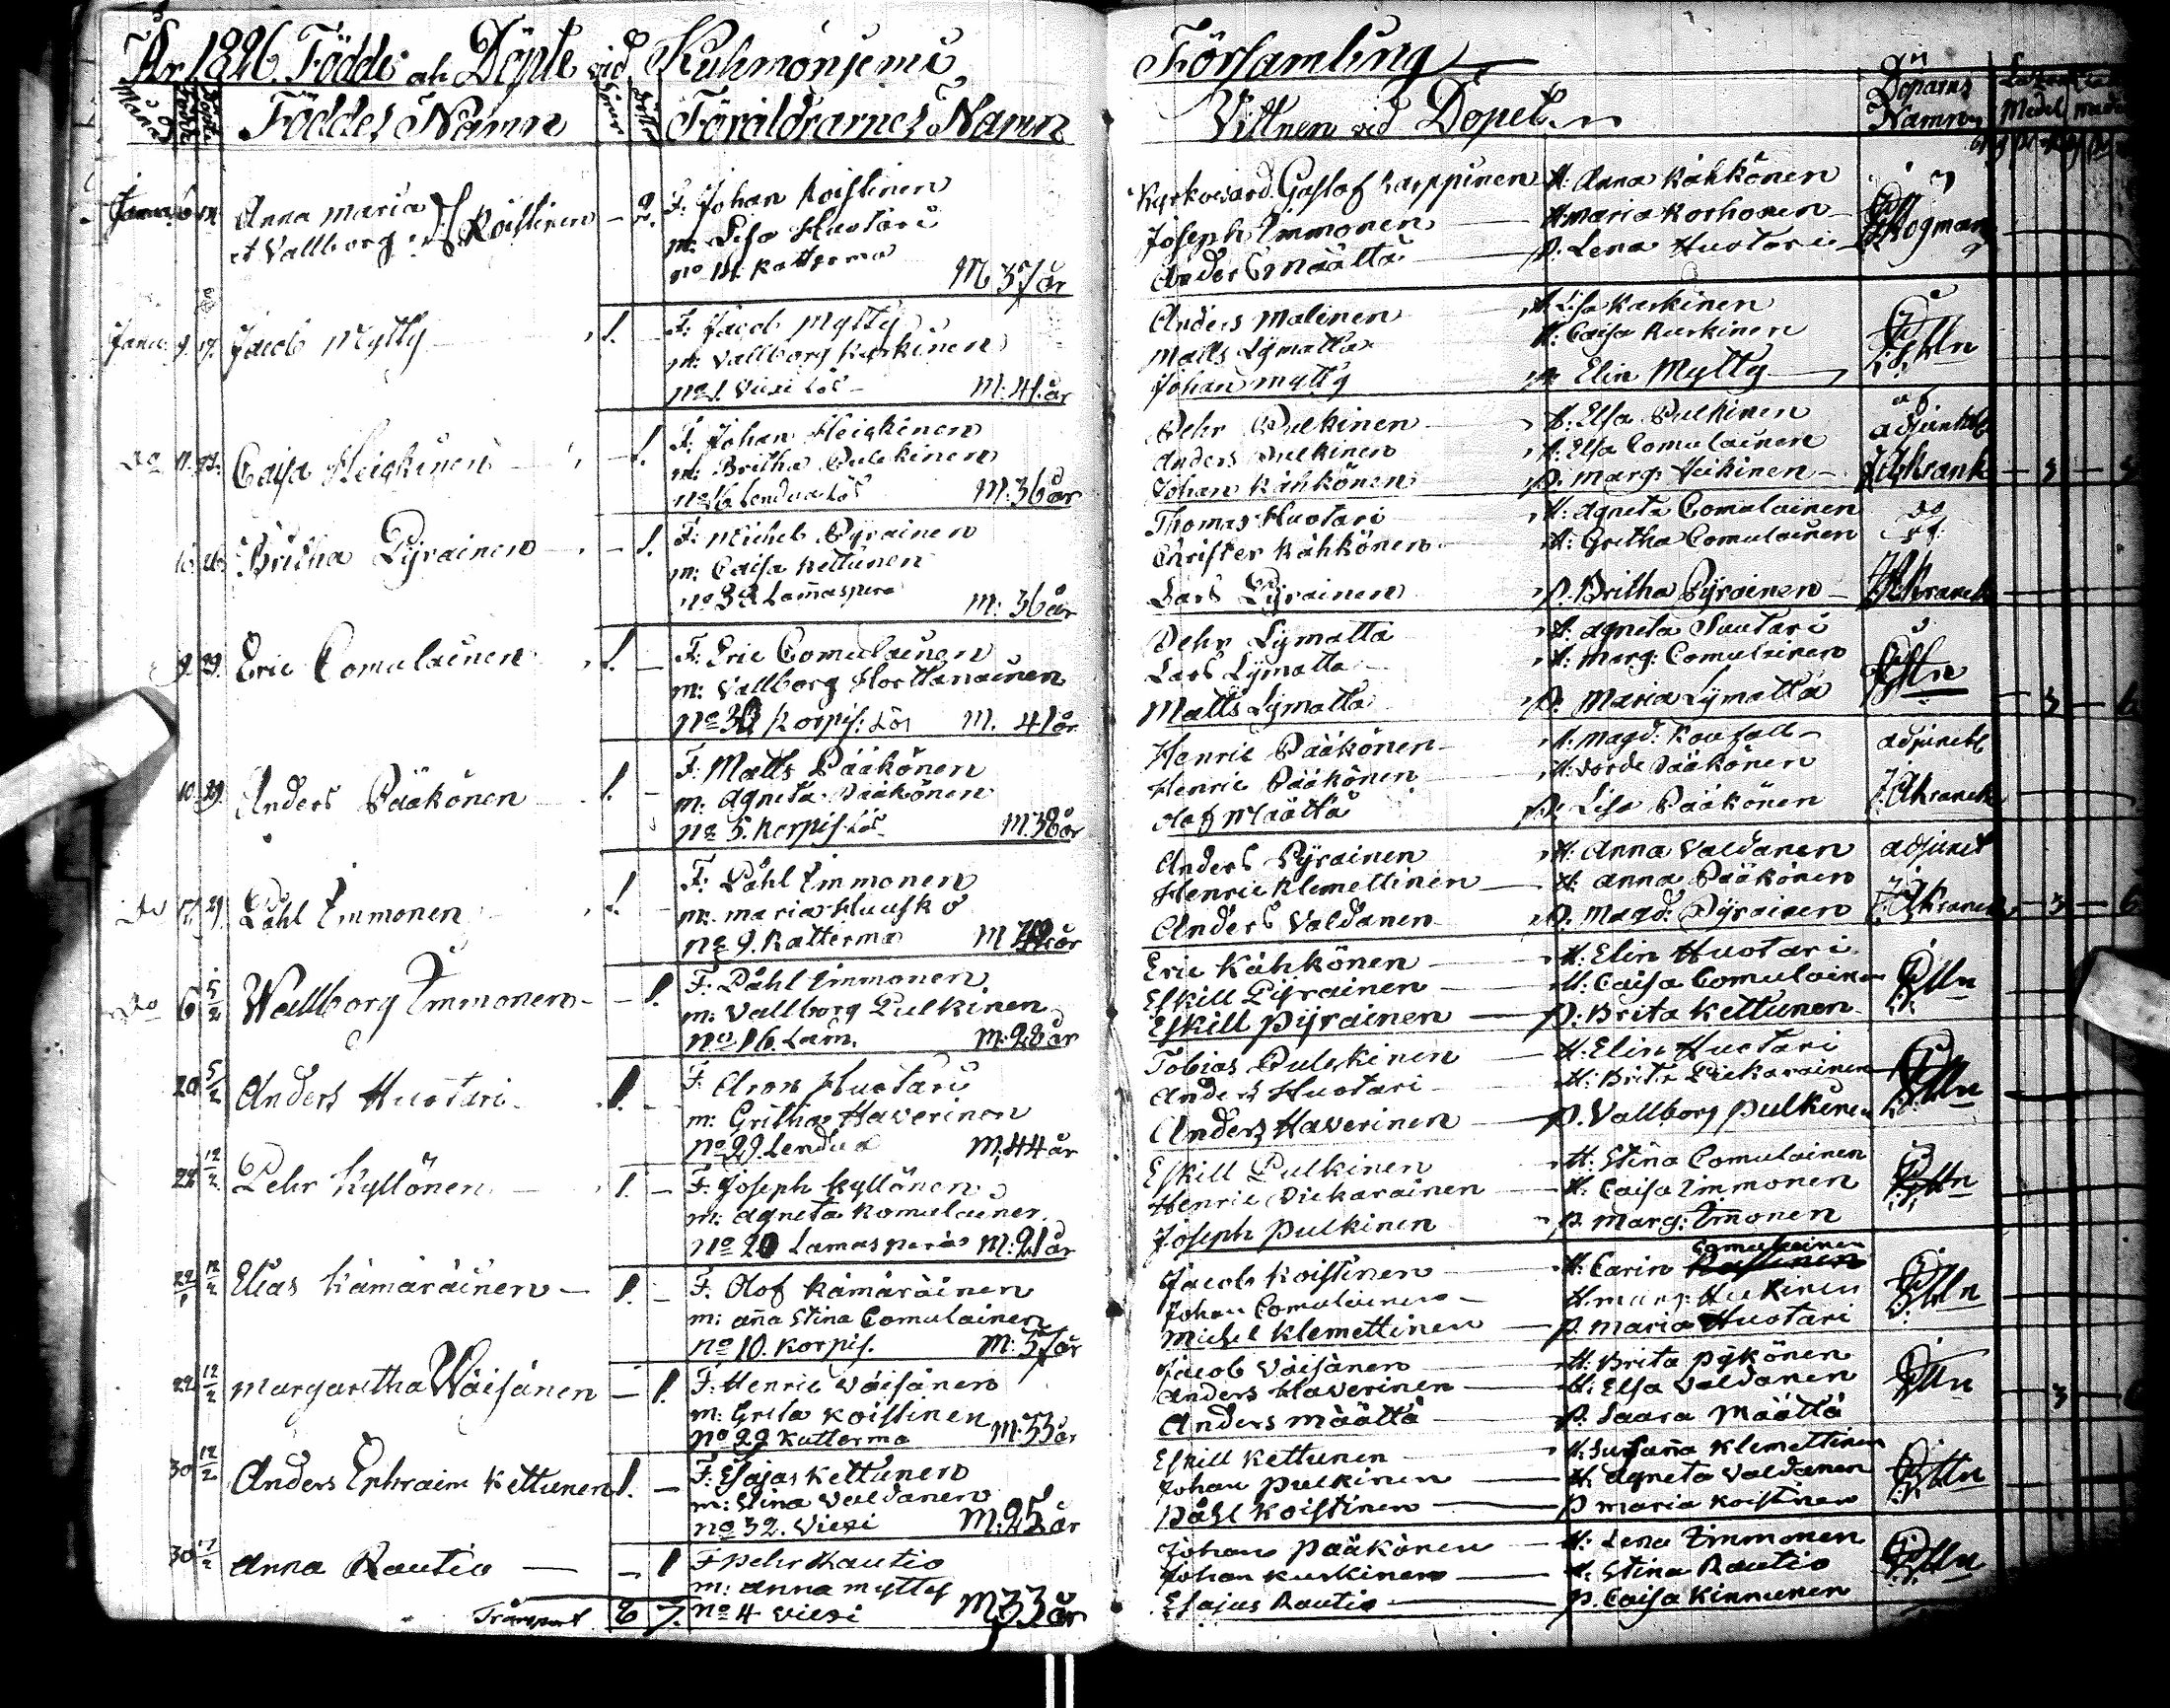 År 1826 Födde och Döpte vid Kuhmoniemi Församling
Månad Födde Döpte Föddes Namn Söner Döttr. Föräldrarnes Namn Vittnen vid Dopet Döparns Namn
Janu. 6 Anna Maria et Vallborg Koistinen — 2.
F: Johan Koistinen
m: Lisa Huotari
no 14. Katterma M 37 år
Kyrkovärd. Gustof Karppinen H: Anna Kähkönen
Joseph Immonen H: Maria Korhonen
Anders Määttä p. Lena Huotari
Janu. 9. 17. Jacob Mytty 1.
F: Jacob Mytty
m: Vallborg Kurkinen
no 1. Viexi Lös M: 41. år
Anders Malinen H. Lisa Kurkinen
Matts Lymatta H: Caisa Kurkinen
Johan Mytty p. Elin Mytty
Do 11. 22. Caisa Heickinen 1.
F: Johan Heickinen
m: Britha Pulckinen
no 16 Lendua Lös M: 36 år
Pehr Pulkinen H: Elsa Pulkinen adjunkt
Anders Pulkinen H: Elsa Comulainen
Johan Kähkönen p. Marg: Heikinen 3
16. 26. Britha Pyrainen — 1.
F: Michel Pyrainen
m: Caisa Kettunen
no 32 Lamaspera M: 36 år
Thomas Huotari H: Agneta Comulainen do
Christer Kähkönen H: Gretha Comulainen
Lars Pyrainen p. Britha Pyrainen
9. 29. Eric Comulainen 1. —
F: Eric Comulainen
m: Vallborg Horttanainen
no 30 Korpis. Lös M. 41 år
Pehr Lymatta H: Agneta Huotari
Lars Lymatta H: Marg: Comulainen
Matts Lymatta p. Maria Lymatta 3 6
10 29 Anders Pääkönen 1. —
F: Matts Pääkönen
m: Agneta Pääkönen
no 5. Korpis. Lös M. 38 år
Henric Pääkönen H: Magd: adjunct
Henric Pääkönen H: Pääkönen
Olof Määttä p. Lisa Pääkönen
Do 17. 29. Påhl Immonen 1.
F: Påhl Immonen
m: Maria Huusko
no 9. Katterma M år
Anders Pyrainen H: Anna Valdanen adjunct
Henric Klemettinen H: Anna Pääkönen
Anders Valdanen p. Magd: Pyrainen 3 6
Do 6 5/2 Wallborg Immonen — 1.
F: Påhl Immonen
m: Vallborg Pulkinen
no 16. Lam. M: 28 år
Eric Kähkönen H: Elin Huotari
Eskill Pyrainen H: Caisa Comulainen
Eskill Pyrainen p: Brita Kettunen
20 5/2 Anders Huotari 1. —
F: Aron Huotari
m: Gritha Haverinen
no 29. Lendua M: 44 år
Tobias Pulckinen H: Elin Huotari
Anders Huotari H: Brita Piekarainen
Anders Haverinen p. Vallborg Pulkinen
22 12/2 Pehr Kyllönen 1. —
F: Joseph Kyllönen
m: Agneta Komulainen
no 20 Lamaspera M: 21 år
Eskill Pulkinen H: Stina Comulainen
Henric Piekarainen H: Caisa Immonen
Joseph Pulkinen p. Marg: Immonen
22/1 12/2 Elias Kämäräinen 1. —
F. Olof Kämäräinen
m: Anna Stina Comulainen
no 10. Korpis. M: 37 år
Jacob Koistinen H: Carin Comulainen
Johan Comulainen H: Marg: Heikinen
Michel Klemettinen p. Maria Huotari
22 12/2 Margaretha Wäisänen — 1.
F: Henric Väisänen
m: Greta Koistinen
no 29 Katterma M: 33 år
Jacob Väisänen H: Brita Pykönen
Anders Haverinen H: Elsa Valdanen
Anders Määttä p. Saara Määttä 3
30 12/2 Anders Ephraim Kettunen 1. —
F: Esajas Kettunen
m: Stina Valdanen
no 32. Viexi M: 25 år
Eskill Kettunen H: Susanna Klemettinen
Johan Pulkinen H: Agneta Valdanen
Påhl Koistinen p Maria Koistinen
30 Anna Rautio — 1
F Pehr Rautio
m: Anna Mytty
no 4 Viexi M 33 år
Johan Pääkönen H: Lena Immonen
Johan Kurkinen H: Stina Rautio
Esajas Rautio p. Caisa Kinnunen
Transport 6 7.